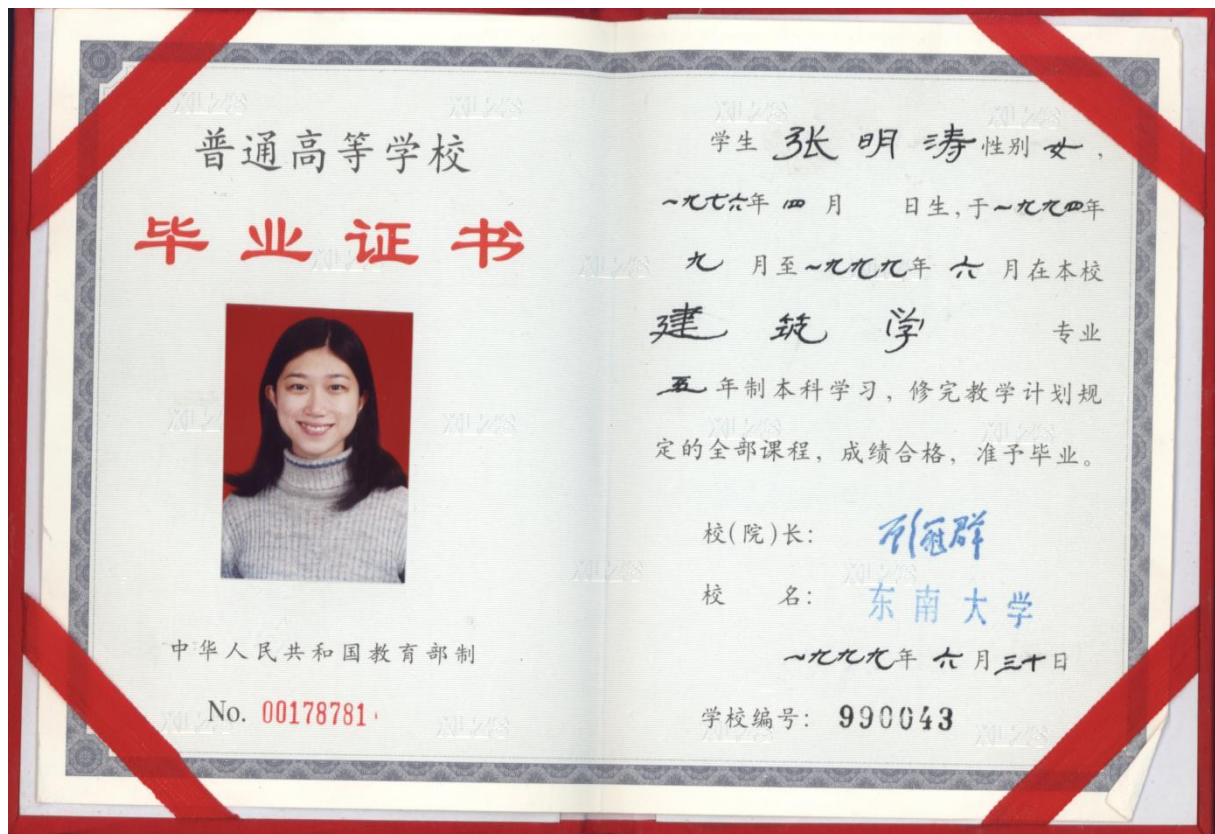 普通高等学校
毕业证书
中华人民共和国教育部制
No. 00178781
学生 张明涛 性别 女，
一九七六年 四 月 日生，于一九九四年
九 月至一九九九年 六 月在本校
建筑学 专业
五 年制本科学习，修完教学计划规
定的全部课程，成绩合格，准予毕业。
校(院)长：顾冠群
校 名：东南大学
一九九九年 六 月三十日
学校编号：990043